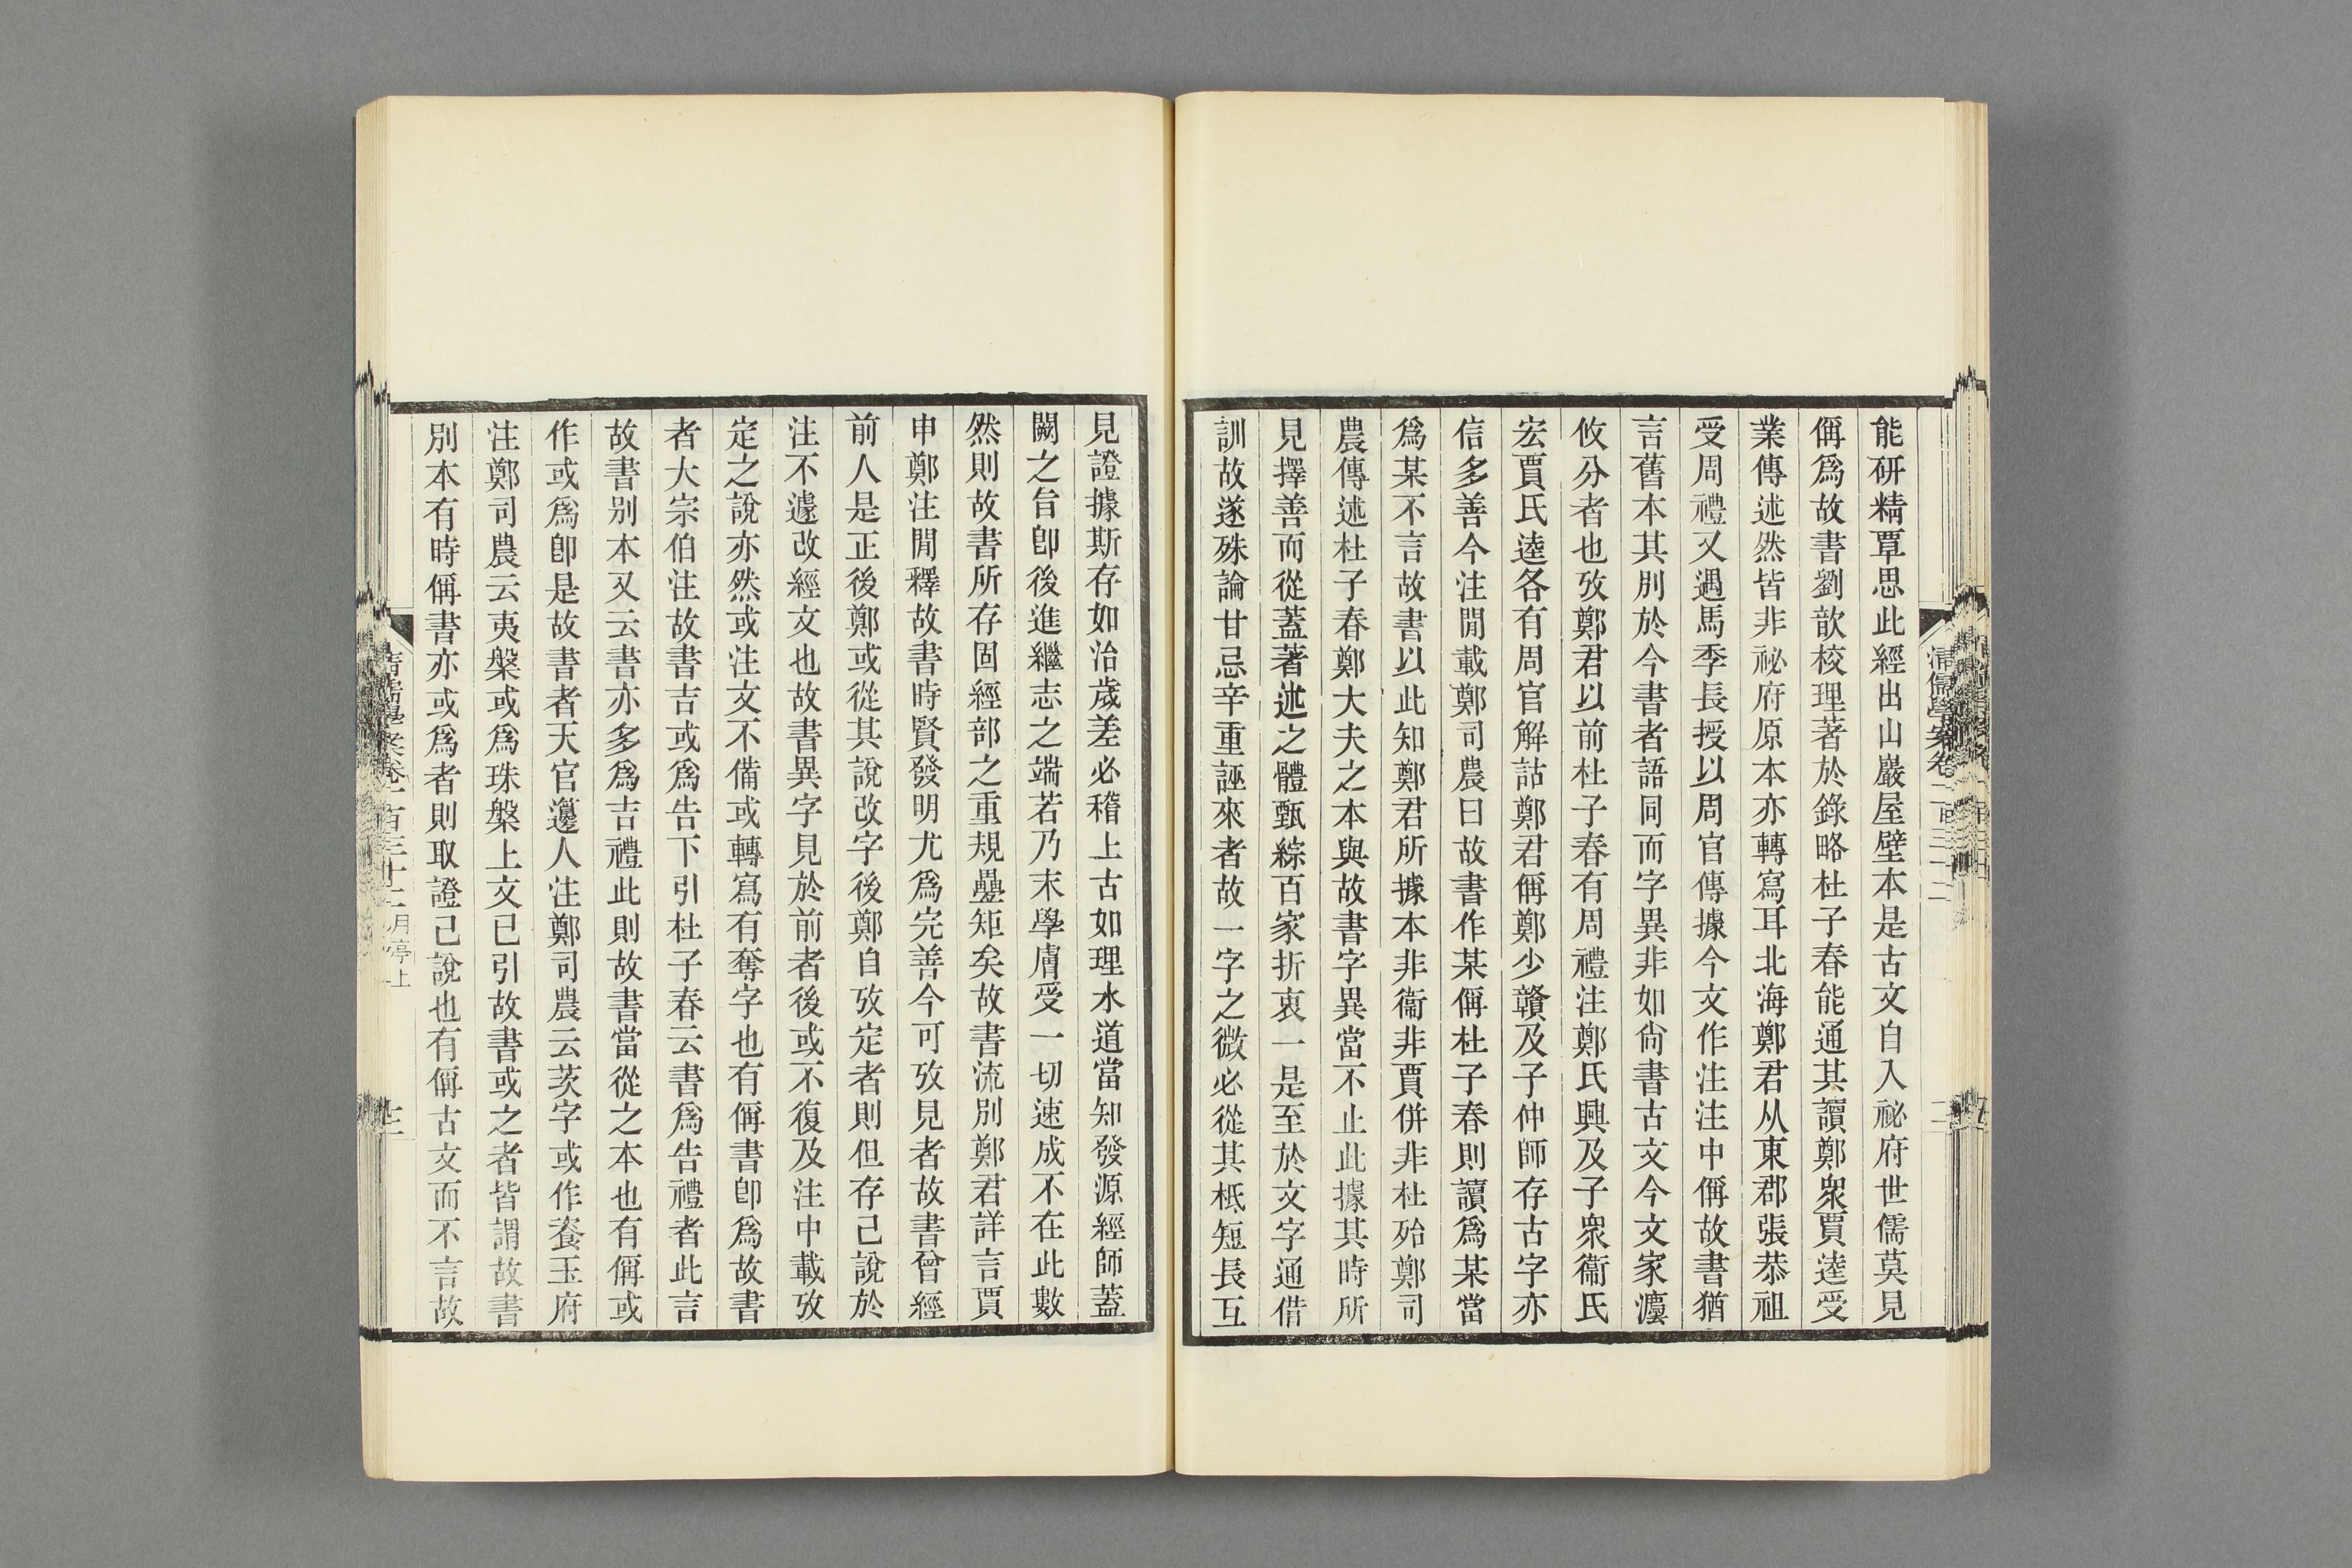 能研精覃思此經出山巖屋壁本是古文自入祕府世儒莫見
偁爲故書劉歆校理著於錄略杜子春能通其讀鄭衆賈逵受
業傳述然皆非祕府原本亦轉寫耳北海鄭君从東郡張恭祖
受周禮又遇馬季長授以周官傳據今文作注注中偁故書猶
言舊本其別於今書者語同而字異非如尙書古文今文家灋
攸分者也攷鄭君以前杜子春有周禮注鄭氏興及子衆衞氏
宏賈氏逵各有周官解詁鄭君偁鄭少贛及子仲師存古字亦
信多善今注閒載鄭司農曰故書作某偁杜子春則讀爲某當
爲某不言故書以此知鄭君所據本非衞非賈併非杜殆鄭司
農傳述杜子春鄭大夫之本與故書字異當不止此據其時所
見擇善而從蓋著述之體甄綜百家折衷一是至於文字通借
訓故遂殊論甘忌辛重誣來者故一字之微必從其柢短長互
見證據斯存如治歲差必稽上古如理水道當知發源經師蓋
闕之旨卽後進繼志之端若乃末學膚受一切速成不在此數
然則故書所存固經部之重規疊矩矣故書流別鄭君詳言賈
申鄭注閒釋故書時賢發明尤爲完善今可攷見者故書曾經
前人是正後鄭或從其說改字後鄭自攷定者則但存己說於
注不遽改經文也故書異字見於前者後或不復及注中載攷
定之說亦然或注文不備或轉寫有奪字也有偁書卽爲故書
者大宗伯注故書吉或爲告下引杜子春云書爲告禮者此言
故書別本又云書亦多爲吉禮此則故書當從之本也有偁或
作或爲卽是故書者天官籩人注鄭司農云茨字或作餈玉府
注鄭司農云夷槃或爲珠槃上文已引故書或之者皆謂故書
別本有時偁書亦或爲者則取證己說也有偁古文而不言故
清儒學案卷一百三十二 月亭上